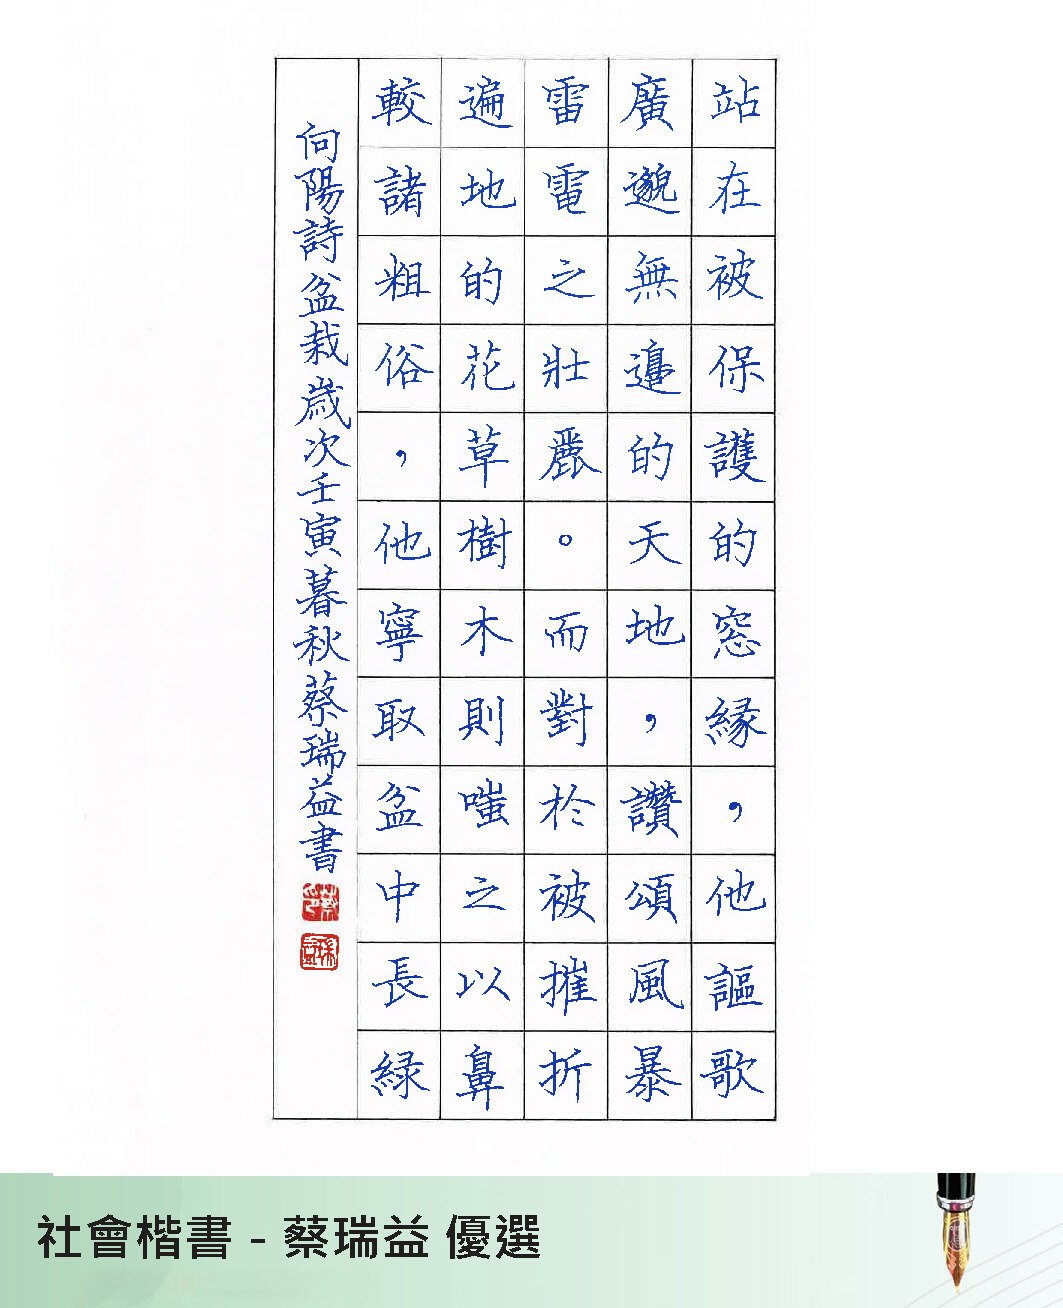 站在被保護的窓緣，他謳歌
廣邈無邊的天地，讚頌風暴
雷電之壯麗。而對於被摧折
遍地的花草樹木則嗤之以鼻
較諸粗俗，他寧取盆中長綠
向陽詩盆栽歲次壬寅暮秋蔡瑞益書
社會楷書 - 蔡瑞益 優選